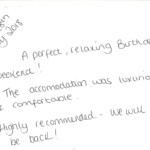 2018
A perfect, relaxing Birthday
weekend!
The accomodation was luxurious
& comfortable.
Highly recommended - we will
be back!